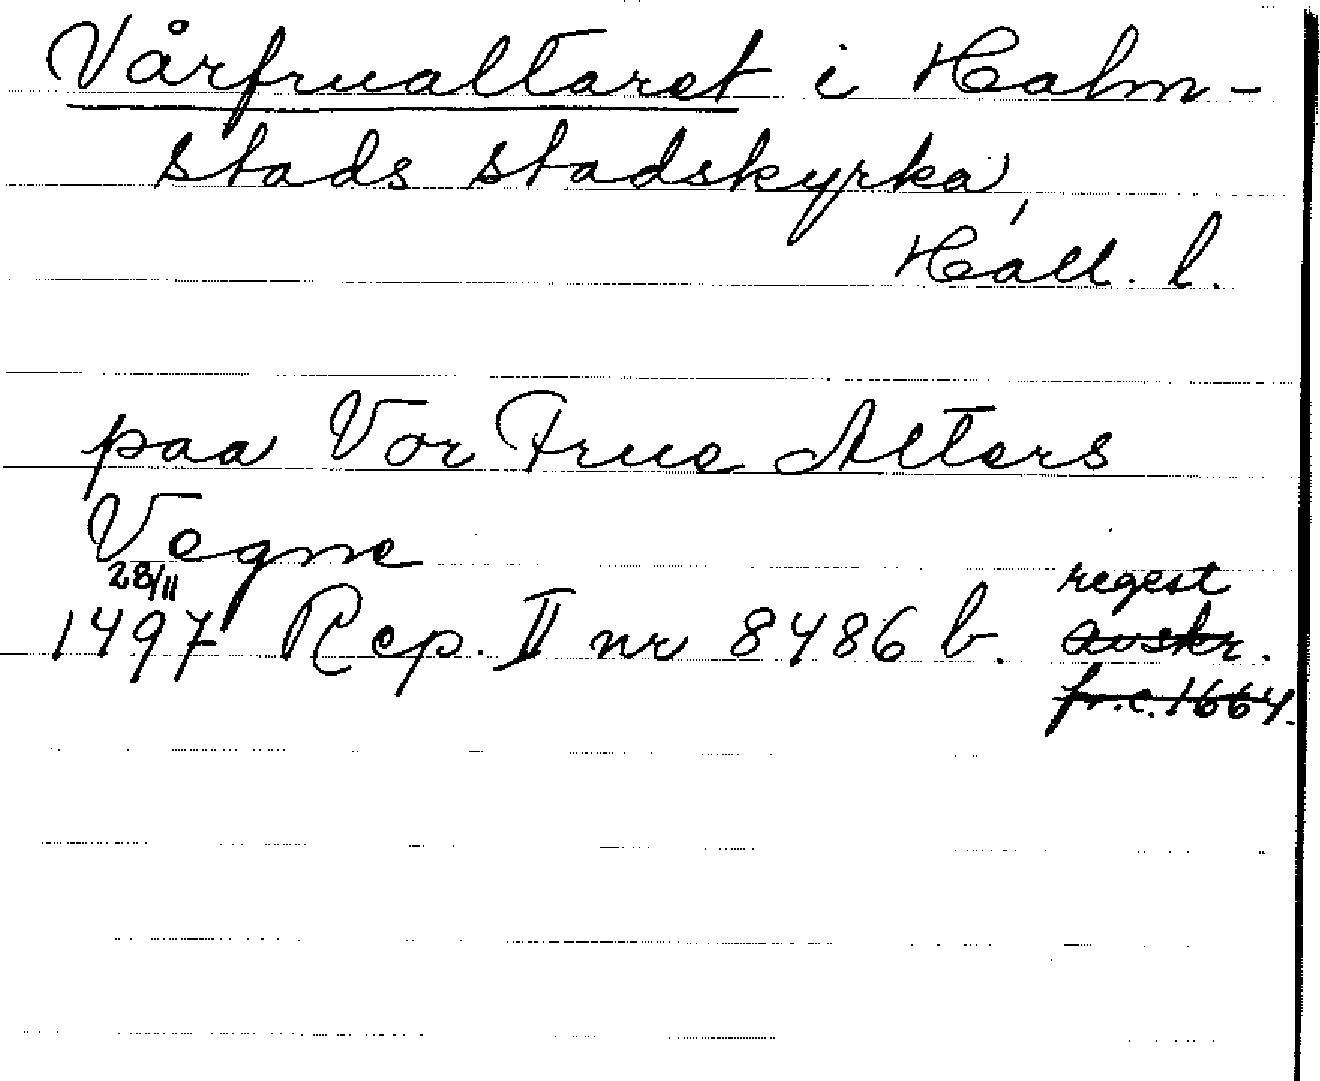 Vårfrualtaret i Halm-
stads stadskyrka,
Hall. l.
paa Vor Frue Alters
Vegne
28/11 regest
1497 Rep. II nr 8486 b. avskr.
fr. c. 1664.